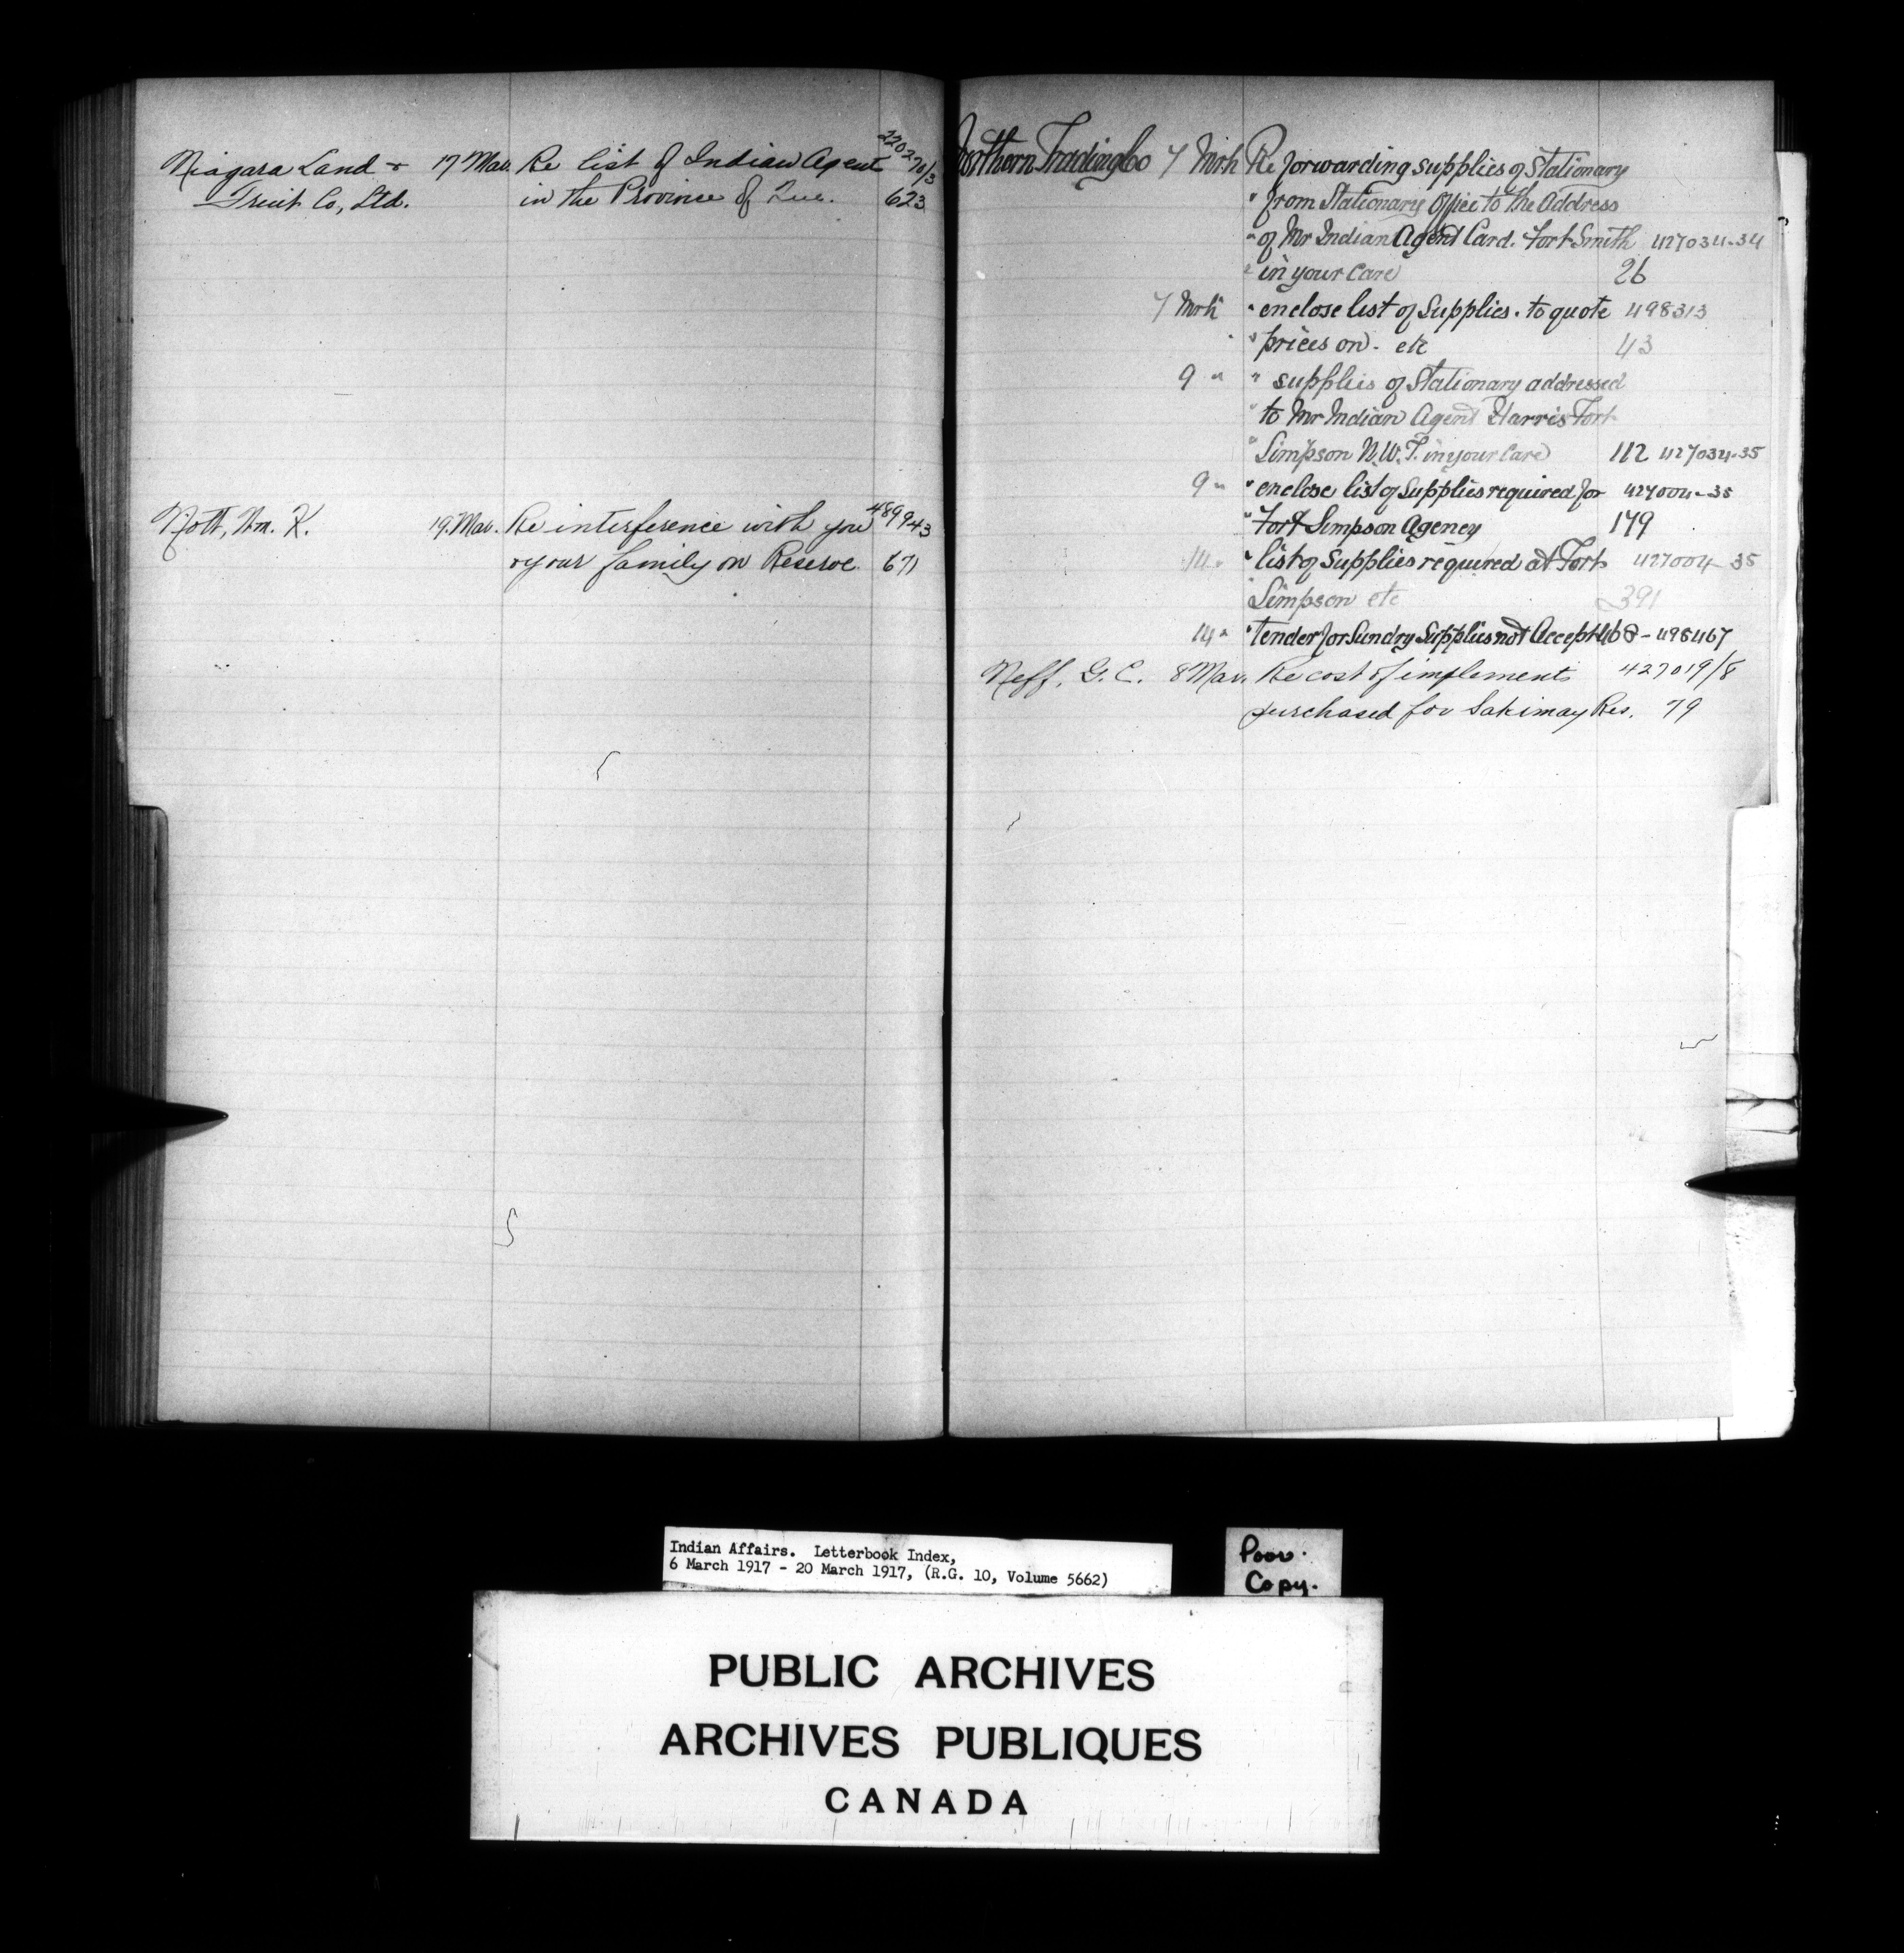 Niagara Land & 17 Mar. Re list of Indian Agent 220270/3
Fruit Co, Ltd. in the Province of Que. 623
Nott, Wm. K. 19. Mar. Re interference with you 489943
or your family on Reserve. 671
Northern Trading Co 7 Mrh Re forwarding supplies of Stationary
" from Stationary Office to the Address
" of Mr Indian Agent Card. Fort Smith 427034-34
" in your Care 26
7 Mrh " enclose list of Supplies. to quote 498313
" " prices on. etc 43
9 " " supplies of Stationary addressed
" to Mr Indian Agent Harris Fort
" Simpson N.W.T. in your Care 112 427034-35
9 " " enclose list of Supplies required for 427004-35
" Fort Simpson Agency 179
14 " " list of Supplies required at Fort 427004-35
" Simpson etc 391
14 " " tender for Sundry Supplies not Accept 468-498467
Neff, G. C. 8 Mar. Re cost of implements 427019/8
purchased for Sakimay Res. 79
Indian Affairs. Letterbook Index,
6 March 1917 - 20 March 1917, (R.G. 10, Volume 5662)
Poor.
Copy.
PUBLIC ARCHIVES
ARCHIVES PUBLIQUES
CANADA